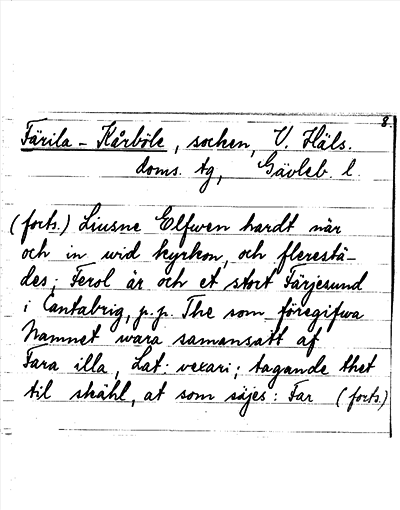 8.
Färila - Kårböle, socken, V. Häls.
doms. tg, Gävleb. l.
(forts.) Liusne Elfwen hardt när
och in wid kyrkon, och flerestä-
des; Ferol är och et stort Färjesund
i Cantabrig, p.p. The som föregifwa
Namnet wara samansatt af
Fara illa, Lat: vexari; tagande thet
til skähl, at som säjes: Far (forts.)